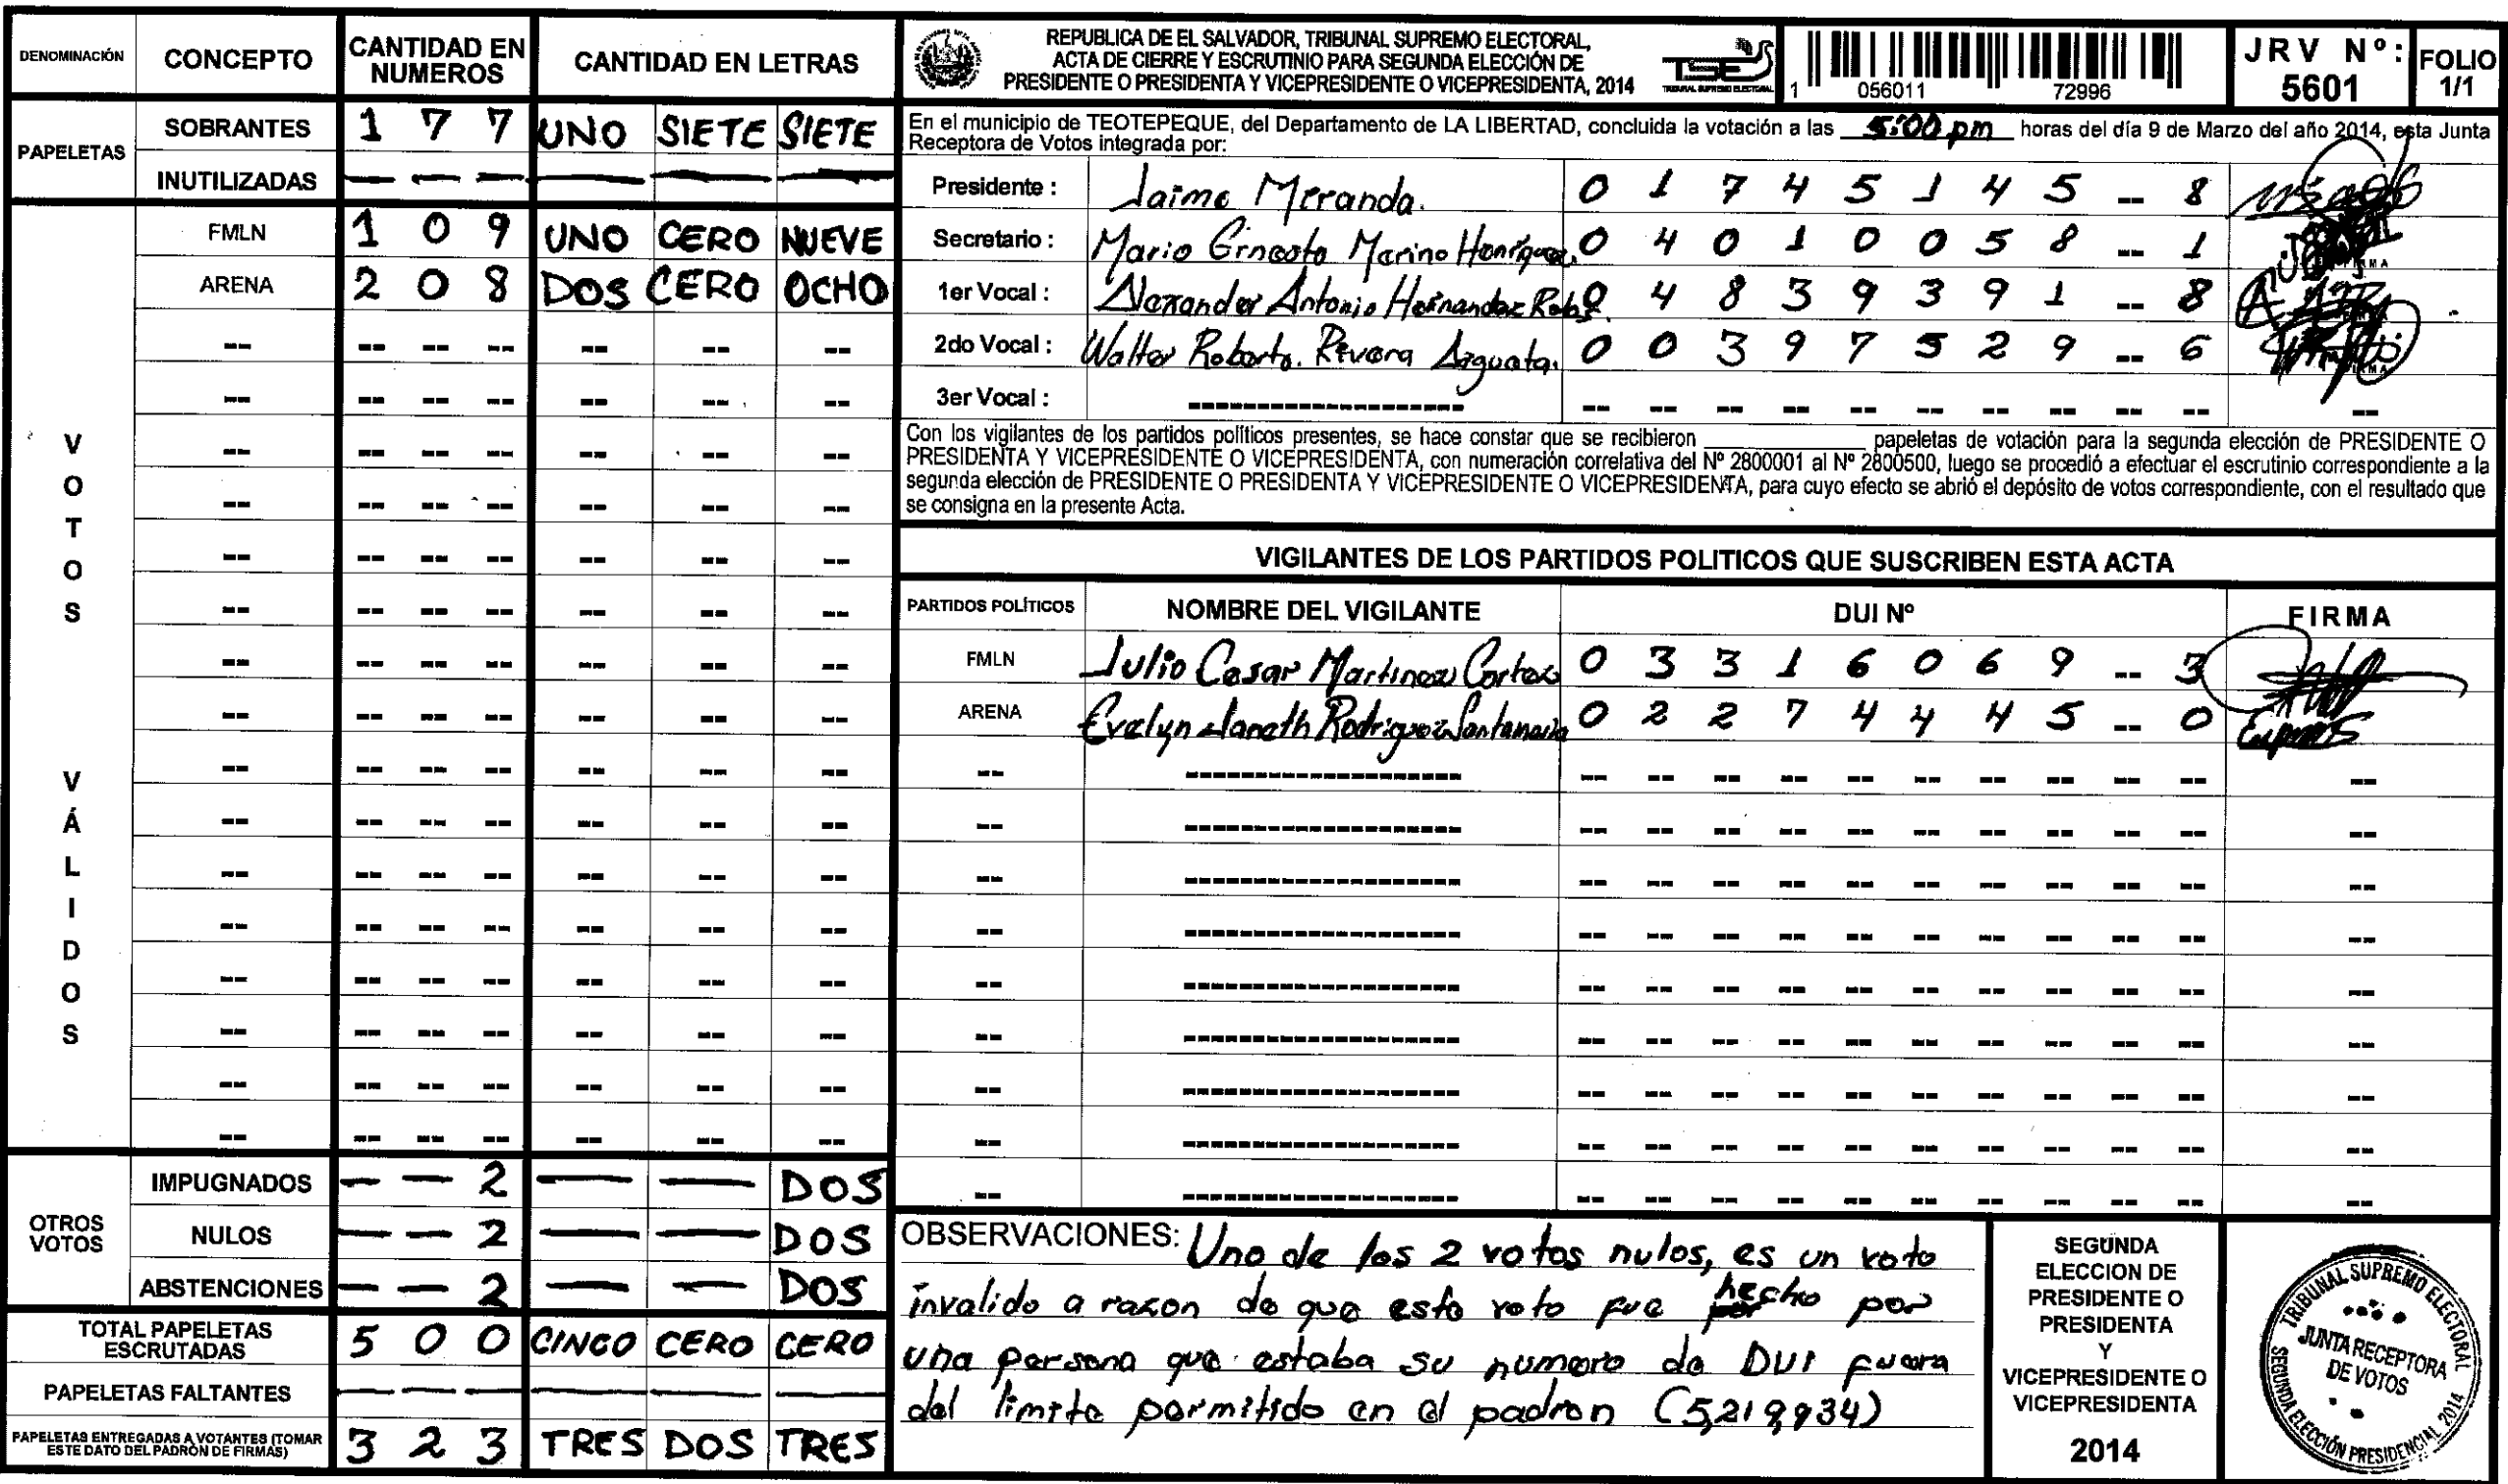 DENOMINACIÓN CONCEPTO CANTIDAD EN NUMEROS CANTIDAD EN LETRAS
PAPELETAS
SOBRANTES 1 7 7 UNO SIETE SIETE
INUTILIZADAS — — — — — —
VOTOS VÁLIDOS
FMLN 1 0 9 UNO CERO NUEVE
ARENA 2 0 8 DOS CERO OCHO
OTROS VOTOS
IMPUGNADOS — — 2 — — DOS
NULOS — — 2 — — DOS
ABSTENCIONES — — 2 — — DOS
TOTAL PAPELETAS ESCRUTADAS 5 0 0 CINCO CERO CERO
PAPELETAS FALTANTES — — — — — —
PAPELETAS ENTREGADAS A VOTANTES (TOMAR ESTE DATO DEL PADRÓN DE FIRMAS) 3 2 3 TRES DOS TRES
REPUBLICA DE EL SALVADOR, TRIBUNAL SUPREMO ELECTORAL,
ACTA DE CIERRE Y ESCRUTINIO PARA SEGUNDA ELECCIÓN DE
PRESIDENTE O PRESIDENTA Y VICEPRESIDENTE O VICEPRESIDENTA, 2014
TSE
TRIBUNAL SUPREMO ELECTORAL
1 056011 72996
JRV Nº: 5601
FOLIO 1/1
En el municipio de TEOTEPEQUE, del Departamento de LA LIBERTAD, concluida la votación a las 5:00 pm horas del día 9 de Marzo del año 2014, esta Junta
Receptora de Votos integrada por:
Presidente : Jaime Miranda. 0 1 7 4 5 1 4 5 -- 8
Secretario : Mario Ernesto Merino Henriquez. 0 4 0 1 0 0 5 8 -- 1
1er Vocal : Alexander Antonio Hernandez 0 4 8 3 9 3 9 1 -- 8
2do Vocal : Walter Roberto. Rivera 0 0 3 9 7 5 2 9 -- 6
3er Vocal : -------------------- -- -- -- -- -- -- -- -- -- -- --
Con los vigilantes de los partidos políticos presentes, se hace constar que se recibieron ________ papeletas de votación para la segunda elección de PRESIDENTE O
PRESIDENTA Y VICEPRESIDENTE O VICEPRESIDENTA, con numeración correlativa del Nº 2800001 al Nº 2800500, luego se procedió a efectuar el escrutinio correspondiente a la
segunda elección de PRESIDENTE O PRESIDENTA Y VICEPRESIDENTE O VICEPRESIDENTA, para cuyo efecto se abrió el depósito de votos correspondiente, con el resultado que
se consigna en la presente Acta.
VIGILANTES DE LOS PARTIDOS POLITICOS QUE SUSCRIBEN ESTA ACTA
PARTIDOS POLÍTICOS NOMBRE DEL VIGILANTE DUI Nº FIRMA
FMLN Julio Cesar Martinez Cortez 0 3 3 1 6 0 6 9 -- 3
ARENA Evelyn Janeth Rodriguez Santamaria 0 2 2 7 4 4 4 5 -- 0
OBSERVACIONES: Uno de los 2 votos nulos, es un voto
invalido a razon de que este voto fue hecho por
una persona que estaba su numero de DUI fuera
del limite permitido en el padron (5,219,934)
SEGUNDA
ELECCION DE
PRESIDENTE O
PRESIDENTA
Y
VICEPRESIDENTE O
VICEPRESIDENTA
2014
TRIBUNAL SUPREMO ELECTORAL
JUNTA RECEPTORA
DE VOTOS
SEGUNDA ELECCIÓN PRESIDENCIAL 2014